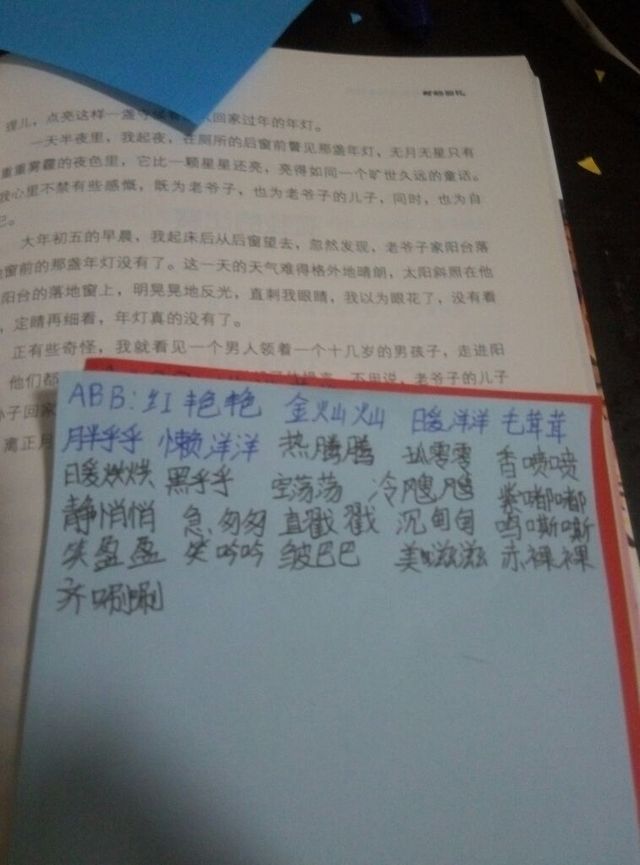 回家过年的年灯。
一天半夜里，我起夜，在厕所的后窗前瞥见那盏年灯，无月无星只有
重重雾霾的夜色里，它比一颗星星还亮，亮得如同一个旷世久远的童话。
我心里不禁有些感慨，既为老爷子，也为老爷子的儿子，同时，也为自
己。
大年初五的早晨，我起床后从后窗望去，忽然发现，老爷子家阳台落
地窗前的那盏年灯没有了。这一天的天气难得格外地晴朗，太阳斜照在他
阳台的落地窗上，明晃晃地反光，直刺我眼睛，我以为眼花了，没有看
，定睛再细看，年灯真的没有了。
正有些奇怪，我就看见一个男人领着一个十几岁的男孩子，走进阳
他们都 不用说，老爷子的儿子
孙子回家
离正月
ABB：红艳艳 金灿灿 暖洋洋 毛茸茸
胖乎乎 懒洋洋 热腾腾 孤零零 香喷喷
暖烘烘 黑乎乎 空荡荡 冷飕飕 紫嘟嘟
静悄悄 急匆匆 直戳戳 沉甸甸 呜嘶嘶
笑盈盈 笑吟吟 皱巴巴 美滋滋 赤裸裸
齐唰唰